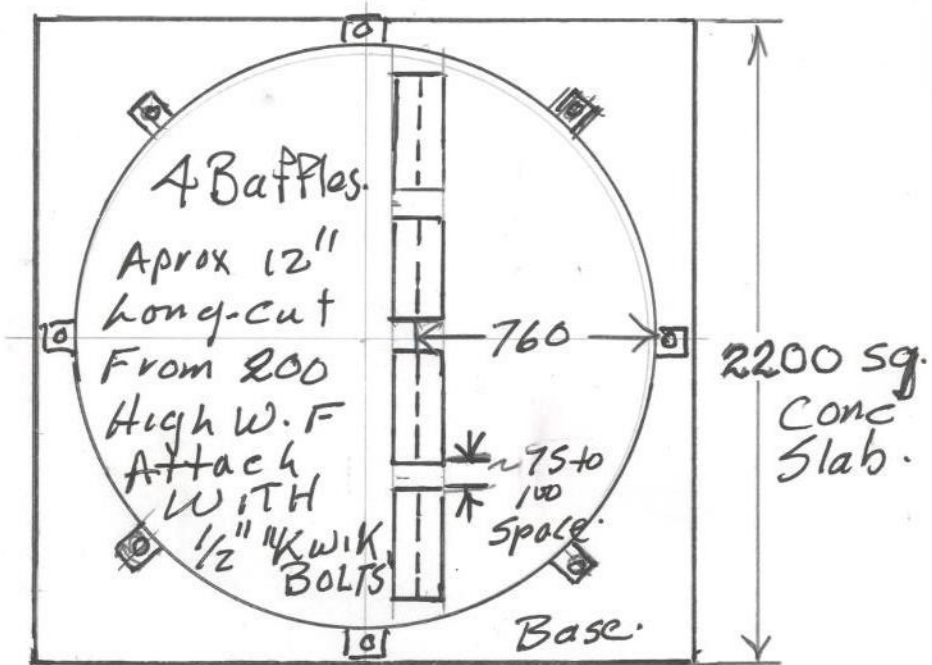 4 Baffles.
Aprox 12"
Long-cut
From 200
High W.F
Attach
WITH
1/2" "KWIK
BOLTS"
760
~75 to
100
Space.
Base.
2200 sq.
Conc
Slab.